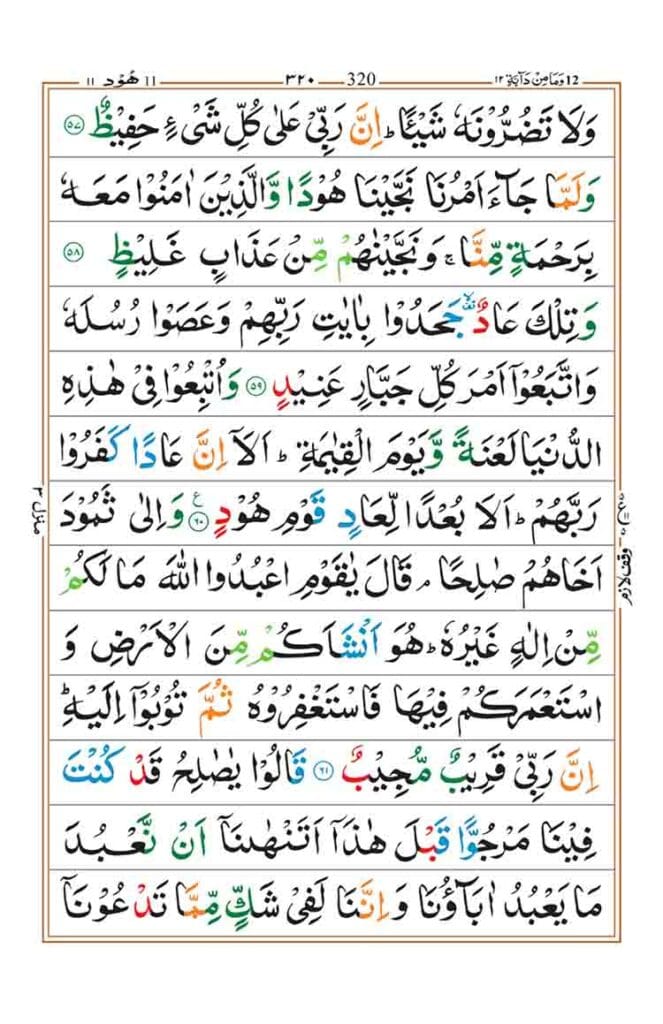 ١١ هُوْد 11 ٣٢٠ 320 وَمَا مِنْ دَآبَّةٍ ١٢ 12
وَلَا تَضُرُّوْنَهٗ شَيْئًا ؕ اِنَّ رَبِّىْ عَلٰى كُلِّ شَىْءٍ حَفِيْظٌ ﴿۵۷﴾
وَلَمَّا جَآءَ اَمْرُنَا نَجَّيْنَا هُوْدًا وَّالَّذِيْنَ اٰمَنُوْا مَعَهٗ
بِرَحْمَةٍ مِّنَّا ۚ وَنَجَّيْنٰهُمْ مِّنْ عَذَابٍ غَلِيْظٍ ﴿۵۸﴾
وَتِلْكَ عَادٌ جَحَدُوْا بِاٰيٰتِ رَبِّهِمْ وَعَصَوْا رُسُلَهٗ
وَاتَّبَعُوْۤا اَمْرَ كُلِّ جَبَّارٍ عَنِيْدٍ ﴿۵۹﴾ وَاُتْبِعُوْا فِىْ هٰذِهِ
الدُّنْيَا لَعْنَةً وَّيَوْمَ الْقِيٰمَةِ ؕ اَلَاۤ اِنَّ عَادًا كَفَرُوْا
رَبَّهُمْ ؕ اَلَا بُعْدًا لِّعَادٍ قَوْمِ هُوْدٍ ﴿۶۰﴾ ع وَاِلٰى ثَمُوْدَ
اَخَاهُمْ صٰلِحًا ۘ قَالَ يٰقَوْمِ اعْبُدُوا اللّٰهَ مَا لَكُمْ
مِّنْ اِلٰهٍ غَيْرُهٗ ؕ هُوَ اَنْشَاَكُمْ مِّنَ الْاَرْضِ وَ
اسْتَعْمَرَكُمْ فِيْهَا فَاسْتَغْفِرُوْهُ ثُمَّ تُوْبُوْۤا اِلَيْهِ ؕ
اِنَّ رَبِّىْ قَرِيْبٌ مُّجِيْبٌ ﴿۶۱﴾ قَالُوْا يٰصٰلِحُ قَدْ كُنْتَ
فِيْنَا مَرْجُوًّا قَبْلَ هٰذَاۤ اَتَنْهٰىنَاۤ اَنْ نَّعْبُدَ
مَا يَعْبُدُ اٰبَآؤُنَا وَاِنَّنَا لَفِىْ شَكٍّ مِّمَّا تَدْعُوْنَاۤ
منزل ٣
وقف لازم